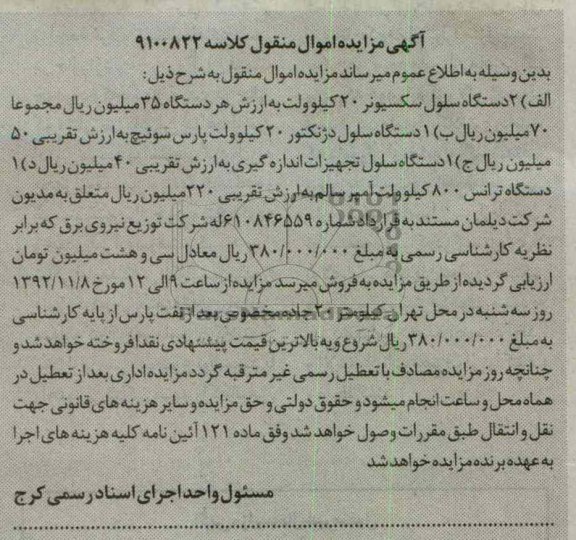 آگهی مزایده اموال منقول کلاسه ۹۱۰۰۸۲۲
بدین وسیله به اطلاع عموم میرساند مزایده اموال منقول به شرح ذیل:
الف) ۲ دستگاه سلول سکسیونر ۲۰ کیلو ولت به ارزش هر دستگاه ۳۵ میلیون ریال مجموعا
۷۰ میلیون ریال ب) ۱ دستگاه سلول دژنکتور ۲۰ کیلو ولت پارس سوئیچ به ارزش تقریبی ۵۰
میلیون ریال ج) ۱ دستگاه سلول تجهیزات اندازه گیری به ارزش تقریبی ۴۰ میلیون ریال د) ۱
دستگاه ترانس ۸۰۰ کیلو ولت آمپر سالم به ارزش تقریبی ۲۲۰ میلیون ریال متعلق به مدیون
شرکت دیلمان مستند به قرارداد شماره ۶۱۰۸۴۶۵۵۹ له شرکت توزیع نیروی برق که برابر
نظریه کارشناسی رسمی به مبلغ ۳۸۰/۰۰۰/۰۰۰ ریال معادل سی و هشت میلیون تومان
ارزیابی گردیده از طریق مزایده به فروش میرسد مزایده از ساعت ۹ الی ۱۲ مورخ ۱۳۹۲/۱۱/۸
روز سه شنبه در محل تهران کیلومتر ۲۰ جاده مخصوص بعد از نفت پارس از پایه کارشناسی
به مبلغ ۳۸۰/۰۰۰/۰۰۰ ریال شروع وبه بالاترین قیمت پیشنهادی نقدا فروخته خواهد شد و
چنانچه روز مزایده مصادف با تعطیل رسمی غیر مترقبه گردد مزایده اداری بعد از تعطیل در
همان محل و ساعت انجام میشود و حقوق دولتی و حق مزایده و سایر هزینه های قانونی جهت
نقل و انتقال طبق مقررات وصول خواهد شد وفق ماده ۱۲۱ آئین نامه کلیه هزینه های اجرا
به عهده برنده مزایده خواهد شد
مسئول واحد اجرای اسناد رسمی کرج